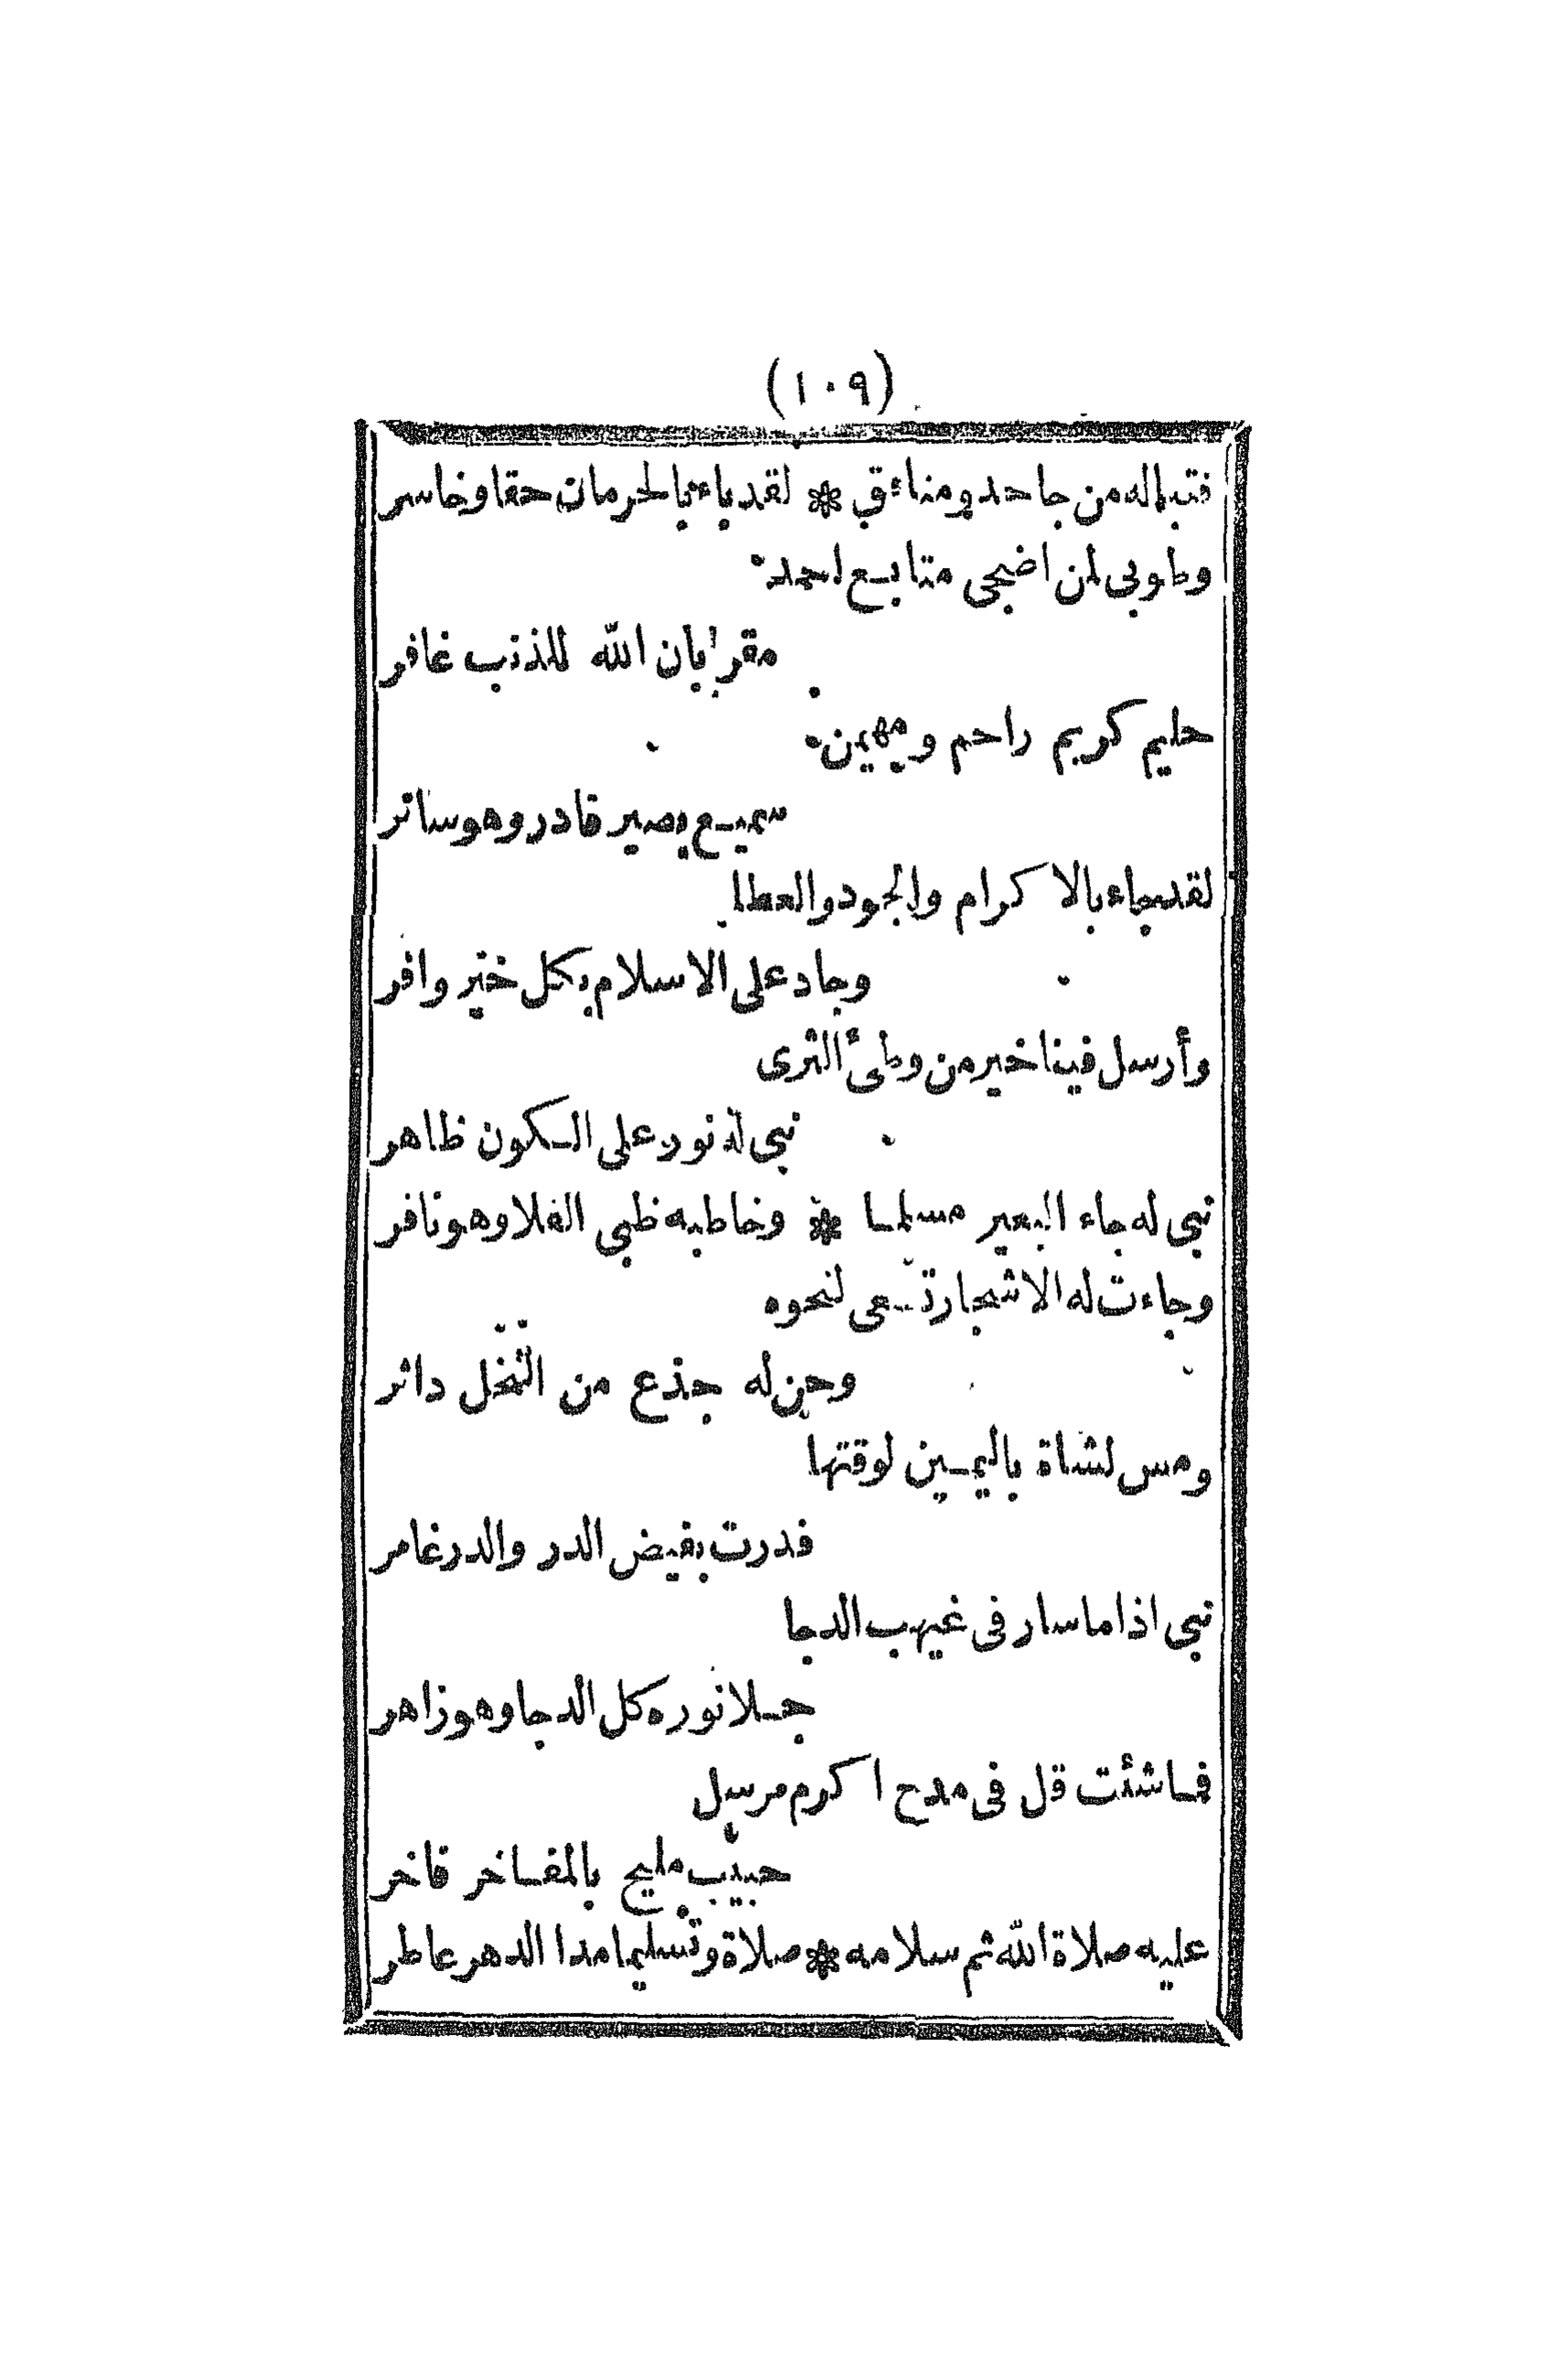 (١٠٩)
فتبا له من جاحد ومنافق * لقد باء بالحرمان حقا وخاسر
وطوبى لمن اضحى متابع احمد
مقرا بان الله للذنب غافر
حليم كريم راحم ومهيمن
سميع بصير قادر وهو ساتر
لقد جاء بالاكرام والجود والعطا
وجاد على الاسلام بكل خير وافر
وأرسل فينا خير من وطئ الثرى
نبى له نور على الكون ظاهر
نبى له جاء البعير مسلما * وخاطبه ظبى الفلا وهو نافر
وجاءت له الاشجار تسعى لنحوه
وحن له جذع من النخل داثر
ومس لشاة باليمين لوقتها
فدرت بفيض الدر والدر غامر
نبى اذا ما سار فى غيهب الدجا
جلا نوره كل الدجا وهو زاهر
فما شئت قل فى مدح اكرم مرسل
حبيب مليح بالمفاخر فاخر
عليه صلاة الله ثم سلامه * صلاة وتسليما مدا الدهر عاطر